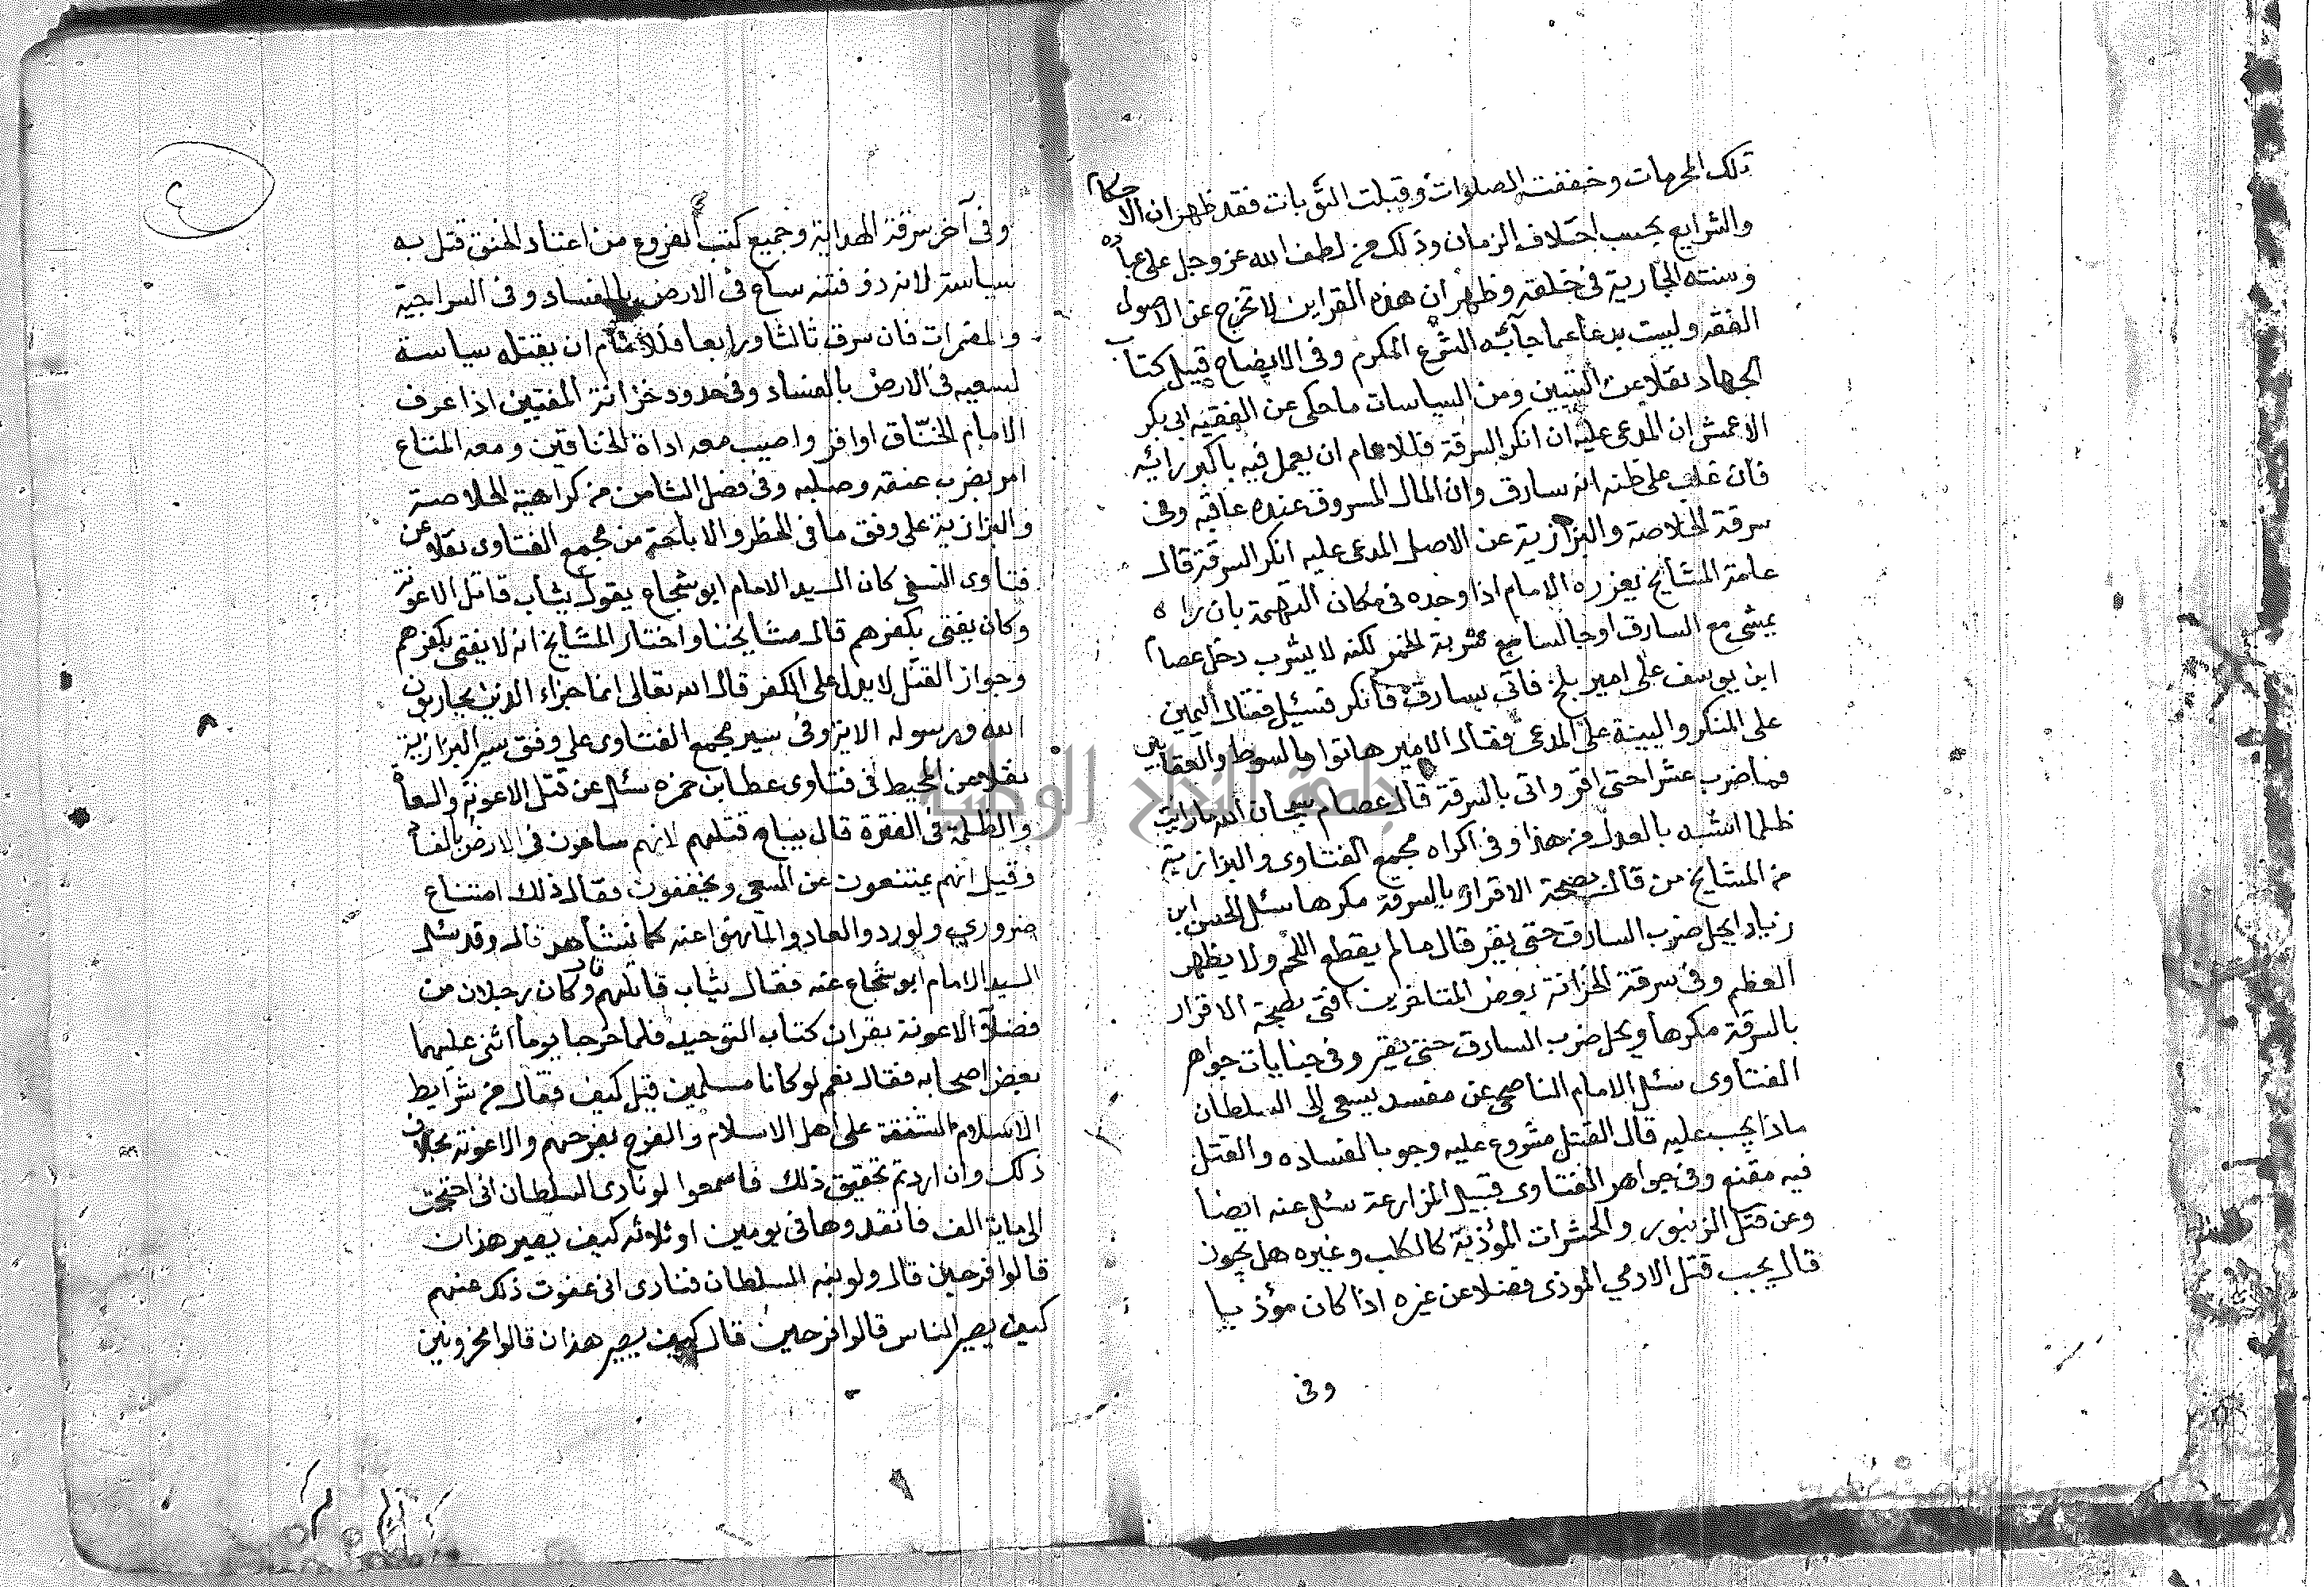 تلك المحرمات وخففت الصلوات وقبلت التوبات فقد ظهر ان الاحكام
والشرايع بحسب اختلاف الزمان وذلك من لطف الله عز وجل على عباده
وسنته الجارية في خلقه وظهر ان هذه القراين لا تخرج عن الاصول
الفقه وليست بدعا عما جآء به الشرع المكرم وفي الايضاح قبيل كتاب
الجهاد نقلا عن التبيين ومن السياسات ما حكى عن الفقيه ابي بكر
الاعمش ان المدعى عليه ان انكر السرقة فللامام ان يعمل فيه باكبر رائيه
فان غلب على ظنه انه سارق وان المال المسروق عنده عاقبه وفي
سرقة الخلاصة والبزازية عن الاصل المدعى عليه انكر السرقة قال
عامة المشايخ يعزره الامام اذا وجده في مكان التهمة بان راه
يمشي مع السارق او جالسا مع شربة الخمر لكنه لا يشرب دخل عصام
ابن يوسف على امير بلخ فاتى بسارق فانكر فسئل فقال اليمين
على المنكر والبينة على المدعى فقال الامير هاتوا بالسوط والعقابين
فما ضرب عشرا حتى اقر واتى بالسرقة قال عصام سبحان الله ما رايت
ظلما اشبه بالعدل من هذا وفي اكراه مجمع الفتاوى والبزازية
من المشايخ من قال بصحة الاقرار بالسرقة مكرها سئل الحسن ابن
زياد ايحل ضرب السارق حتى يقر قال ما لم يقطع اللحم ولا يظهر
العظم وفي سرقة الخزانة بعض المتاخرين افتى بصحة الاقرار
بالسرقة مكرها ويحل ضرب السارق حتى يقر وفي جنايات جواهر
الفتاوى سئل الامام الناصحي عن مفسد يسعى الى السلطان
ماذا يجب عليه قال القتل مشروع عليه وجوبا لفساده والقتل
فيه مقنع وفي جواهر الفتاوى قبيل المزارعة سئل عنه ايضا
وعن قتل الزنبور والحشرات المؤذية كالكلب وغيره هل يجوز
قال يجب قتل الادمي الموذى فضلا عن غيره اذا كان مؤذيا
وفي
وفي آخر سرقة الهداية وجميع كتب الفروع من اعتاد الخنق قتل به
سياسة لانه ذو فتنه ساع في الارض بالفساد وفي السراجية
والمضمرات فان سرق ثالثا ورابعا فللامام ان يقتله سياسة
لسعيه في الارض بالفساد وفي حدود خزانة المفتيين اذا عرف
الامام الخناق او اقر واصيب معه اداة الخناقين ومعه المتاع
امر بضرب عنقه وصلبه وفي فصل الثامن من كراهية الخلاصة
والبزازية على وفق ما في الحظر والاباحة من مجمع الفتاوى نقلا عن
فتاوى النسفي كان السيد الامام ابو شجاع يقول يثاب قاتل الاعونة
وكان يفتي بكفرهم قال مشايخنا واختار المشايخ انه لا يفتى بكفرهم
وجواز القتل لا يدل على الكفر قال الله تعالى انما جزاء الذين يحاربون
الله ورسوله الاية وفي سير مجمع الفتاوى على وفق سير البزازية
نقلا عن المحيط في فتاوى عطا بن حمزه سئل عن قتل الاعونة والسعاة
والظلمة في الفترة قال يباح قتلهم لانهم ساعون في الارض بالفساد
وقيل انهم يمتنعون عن السعي ويخففون فقال ذلك امتناع
ضروري ولو ردوا لعادوا لما نهوا عنه كما نشاهد قال وقد سئل
السيد الامام ابو شجاع عنه فقال يثاب قاتلهم قال وكان رجلان من
فضلاء الاعونة يقران كتاب التوحيد فلما خرجا يوما اثنى عليهما
بعض اصحابه فقال نعم لو كانا مسلمين قيل كيف فقال من شرايط
الاسلام الشفقة على اهل الاسلام والفرح بفرحهم والاعونة بخلاف
ذلك وان اردتم تحقيق ذلك فاسمعوا لو نادى السلطان اني احتجت
الى ماية الف فانقدوها في يومين او ثلاثه كيف يصير هذان
قالوا فرحين قال ولو السلطان فنادى اني عفوت ذلك منهم
كيف يصير الناس قالوا فرحين قال كيف يصير هذان قالوا محزونين
جامعة النجاح الوطنية